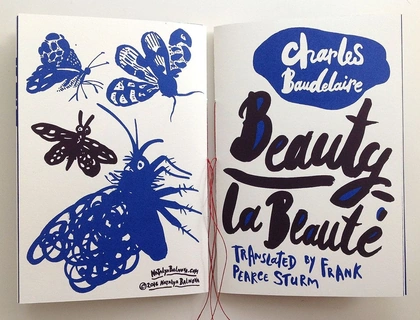 NatalyaBalnova.com
© 2016 Natalya Balnova
Charles
Baudelaire
Beauty
la Beauté
TRANSLATED by FRANK
PEARCE STURM